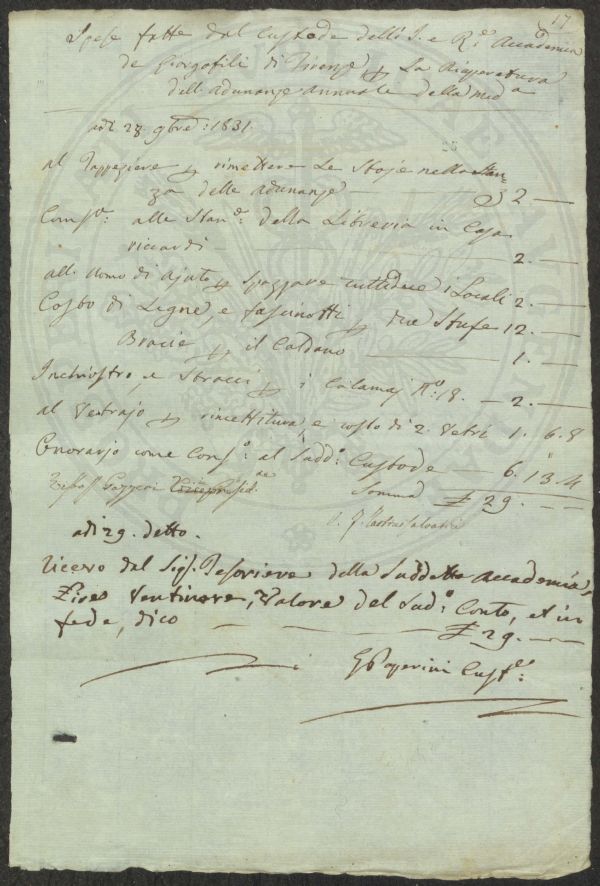 17
Spese fatte dal Custode dell' I. e R.e Accademia
de Georgofili di Firenze p La Riapertura
dell'adunanze annuale della med.a
adi 28. 9bre: 1831.
al Tappeziere p rimettere Le Stoje nella Stan
za delle adunanze — 2 —
Comp.o: alle Stan.e: della Libreria in Casa
riccardi — 2. —
all'uomo di Ajuto p Spazzare tuttidue i Locali 2. —
Costo di Legne, e fascinotti p due Stufe 12. —
Bracie p il Caldano — 1. —
Inchiostro, e Stracci p i Calamaj N.o: 18. — 2. —
al Vetrajo p rimettitura, e costo di 2. Vetri 1. 6. 8
Onorario come Cons.o: al Sudd.o: Custode — 6. 13. 4
Somma £ 29. —
adi 29. detto.
ricevo dal Sig.r Tesoriere della Suddetta Accademia,
Lire Ventinove, Valore del Sud.o Conto, et in
fede, dico — £ 29. —
Paperini Cust.e: